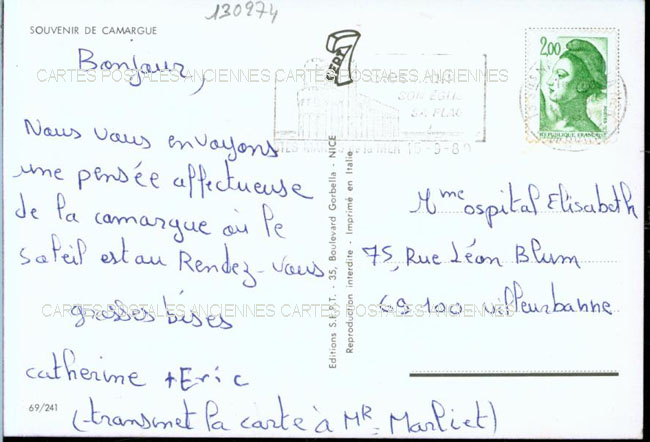 130974
SOUVENIR DE CAMARGUE
Bonjour,
CARTES POSTALES ANCIENNES CARTES POSTALES ANCIENNES
Nous vous envoyons
une pensée affectueuse
de la camargue où le
soleil est au Rendez-vous
CARTES POSTALES ANCIENNES CARTES POSTALES ANCIENNES
grosses bises
catherine + Eric
69/241
(transmet la carte à MR Marliet)
SEPT 7
Editions S.E.P.T. - 35, Boulevard Gorbella - NICE
Reproduction interdite - Imprimé en Italie
2,00
REPUBLIQUE FRANCAISE
Mme ospital Elisabeth
75, Rue Léon Blum
69100 villeurbanne